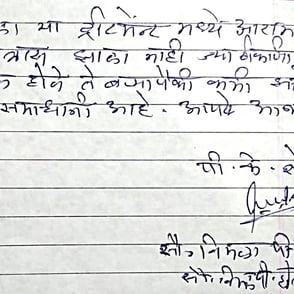 ला या ट्रीटमेंट मध्ये आराम
त्रास झाला नाही ज्या ठिकाणी
होते ते बऱ्यापैकी कमी
समाधानी आहे. आपले आभ
पी. के. शे
सौ. निर्मला पी